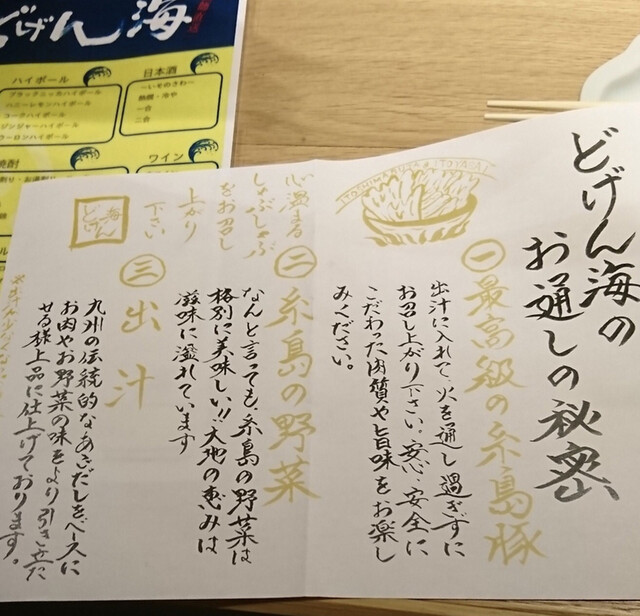 どげん海の
お通しの秘密
ITOSHIMABUTA & ITOYASAI
㊀最高級の糸島豚
出汁に入れて、火を通し過ぎずに
お召し上がり下さい。安心、安全に
こだわった肉質や旨味をお楽し
みください。
㊁糸島の野菜
なんと言っても、糸島の野菜は
格別に美味しい!!大地の恵みは
滋味に溢れています
㊂出汁
九州の伝統的なあごだしをベースに
お肉やお野菜の味をより引き立た
せる様上品に仕上げております。
心温まる
しゃぶしゃぶ
をお召し
上がり
下さい
海
どげん
どげん海
ハイボール
ブラックニッカハイボール
ハニーレモンハイボール
コークハイボール
ジンジャーハイボール
日本酒
〜いそのさわ〜
熱燗・冷や
一合
二合
焼酎
ワイン